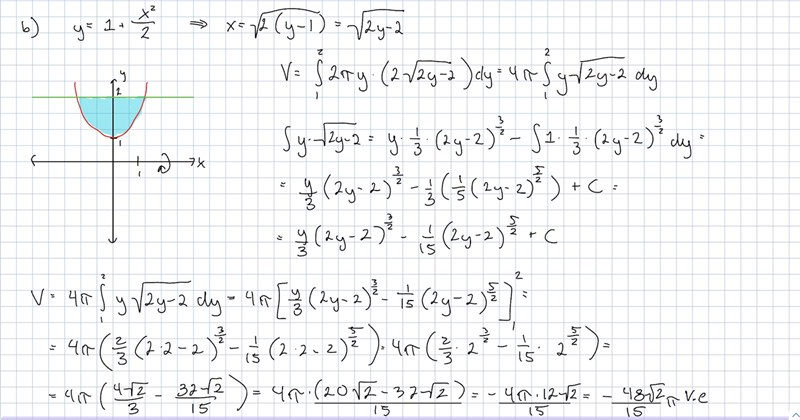 b) y = 1 + x²/2 ⇒ x = √(2(y-1)) = √(2y-2)
V = ∫₁² 2πy · (2√(2y-2)) dy = 4π ∫₁² y√(2y-2) dy
y
2
1
x
1
∫ y·√(2y-2) = y · 1/3 · (2y-2)^(3/2) - ∫ 1 · 1/3 · (2y-2)^(3/2) dy =
= y/3 (2y-2)^(3/2) - 1/3 (1/5 (2y-2)^(5/2)) + C =
= y/3 (2y-2)^(3/2) - 1/15 (2y-2)^(5/2) + C
V = 4π ∫₁² y √(2y-2) dy = 4π [y/3 (2y-2)^(3/2) - 1/15 (2y-2)^(5/2)]₁² =
= 4π (2/3 (2·2-2)^(3/2) - 1/15 (2·2-2)^(5/2)) = 4π (2/3 · 2^(3/2) - 1/15 · 2^(5/2)) =
= 4π (4√2/3 - 32√2/15) = 4π · (20√2 - 32√2)/15 = - 4π·12√2/15 = - 48√2/15 π v.e